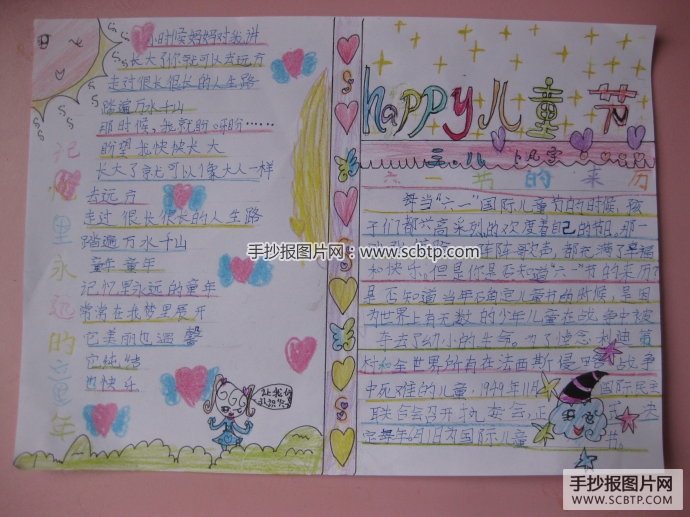 小时候妈妈对我讲
长大了你就可以去远方
走过很长很长的人生路
踏遍万水千山
那时候，我就盼呀盼……
盼望我快快长大
长大了就可以像大人一样
去远方
走过很长很长的人生路
踏遍万水千山
童年童年
记忆里永远的童年
常常在我梦里展开
它美丽也温馨
它纯洁
也快乐
记忆里永远的童年
HAPPY儿童节
六一节的来历
每当“六一”国际儿童节的时候，孩
子们都兴高采烈的欢度着自己的节日，那一
阵阵歌声，都充满了幸福
和快乐，但是你是否知道“六一”节的来历？
是否知道当年
为世界上有无数的少年儿童在战争中被
夺去了幼小的生命。为了悼念利迪策
村和全世界所有在法西斯侵略战争
中死难的儿童，1949年11月 国际民主
联合会召开执委会，正式决
定每年6月1日为国际儿童节。
手抄报图片网-www.scbtp.com
手抄报图片网
WWW.SCBTP.COM